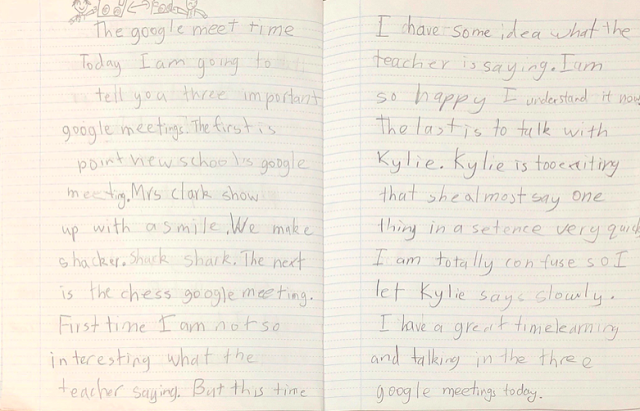 The google meet time
Today I am going to
tell you three important
google meetings. The first is
point new school's google
meeting. Mrs Clark show
up with a smile. We make
shacker. Shack shark. The next
is the chess google meeting.
First time I am not so
interesting what the
teacher saying. But this time
I have some idea what the
teacher is saying. I am
so happy I understand it now
The last is to talk with
Kylie. Kylie is too exiting
that she almost say one
thing in a setence very quick
I am totally confuse so I
let Kylie says slowly.
I have a great time learning
and talking in the three
google meetings today.